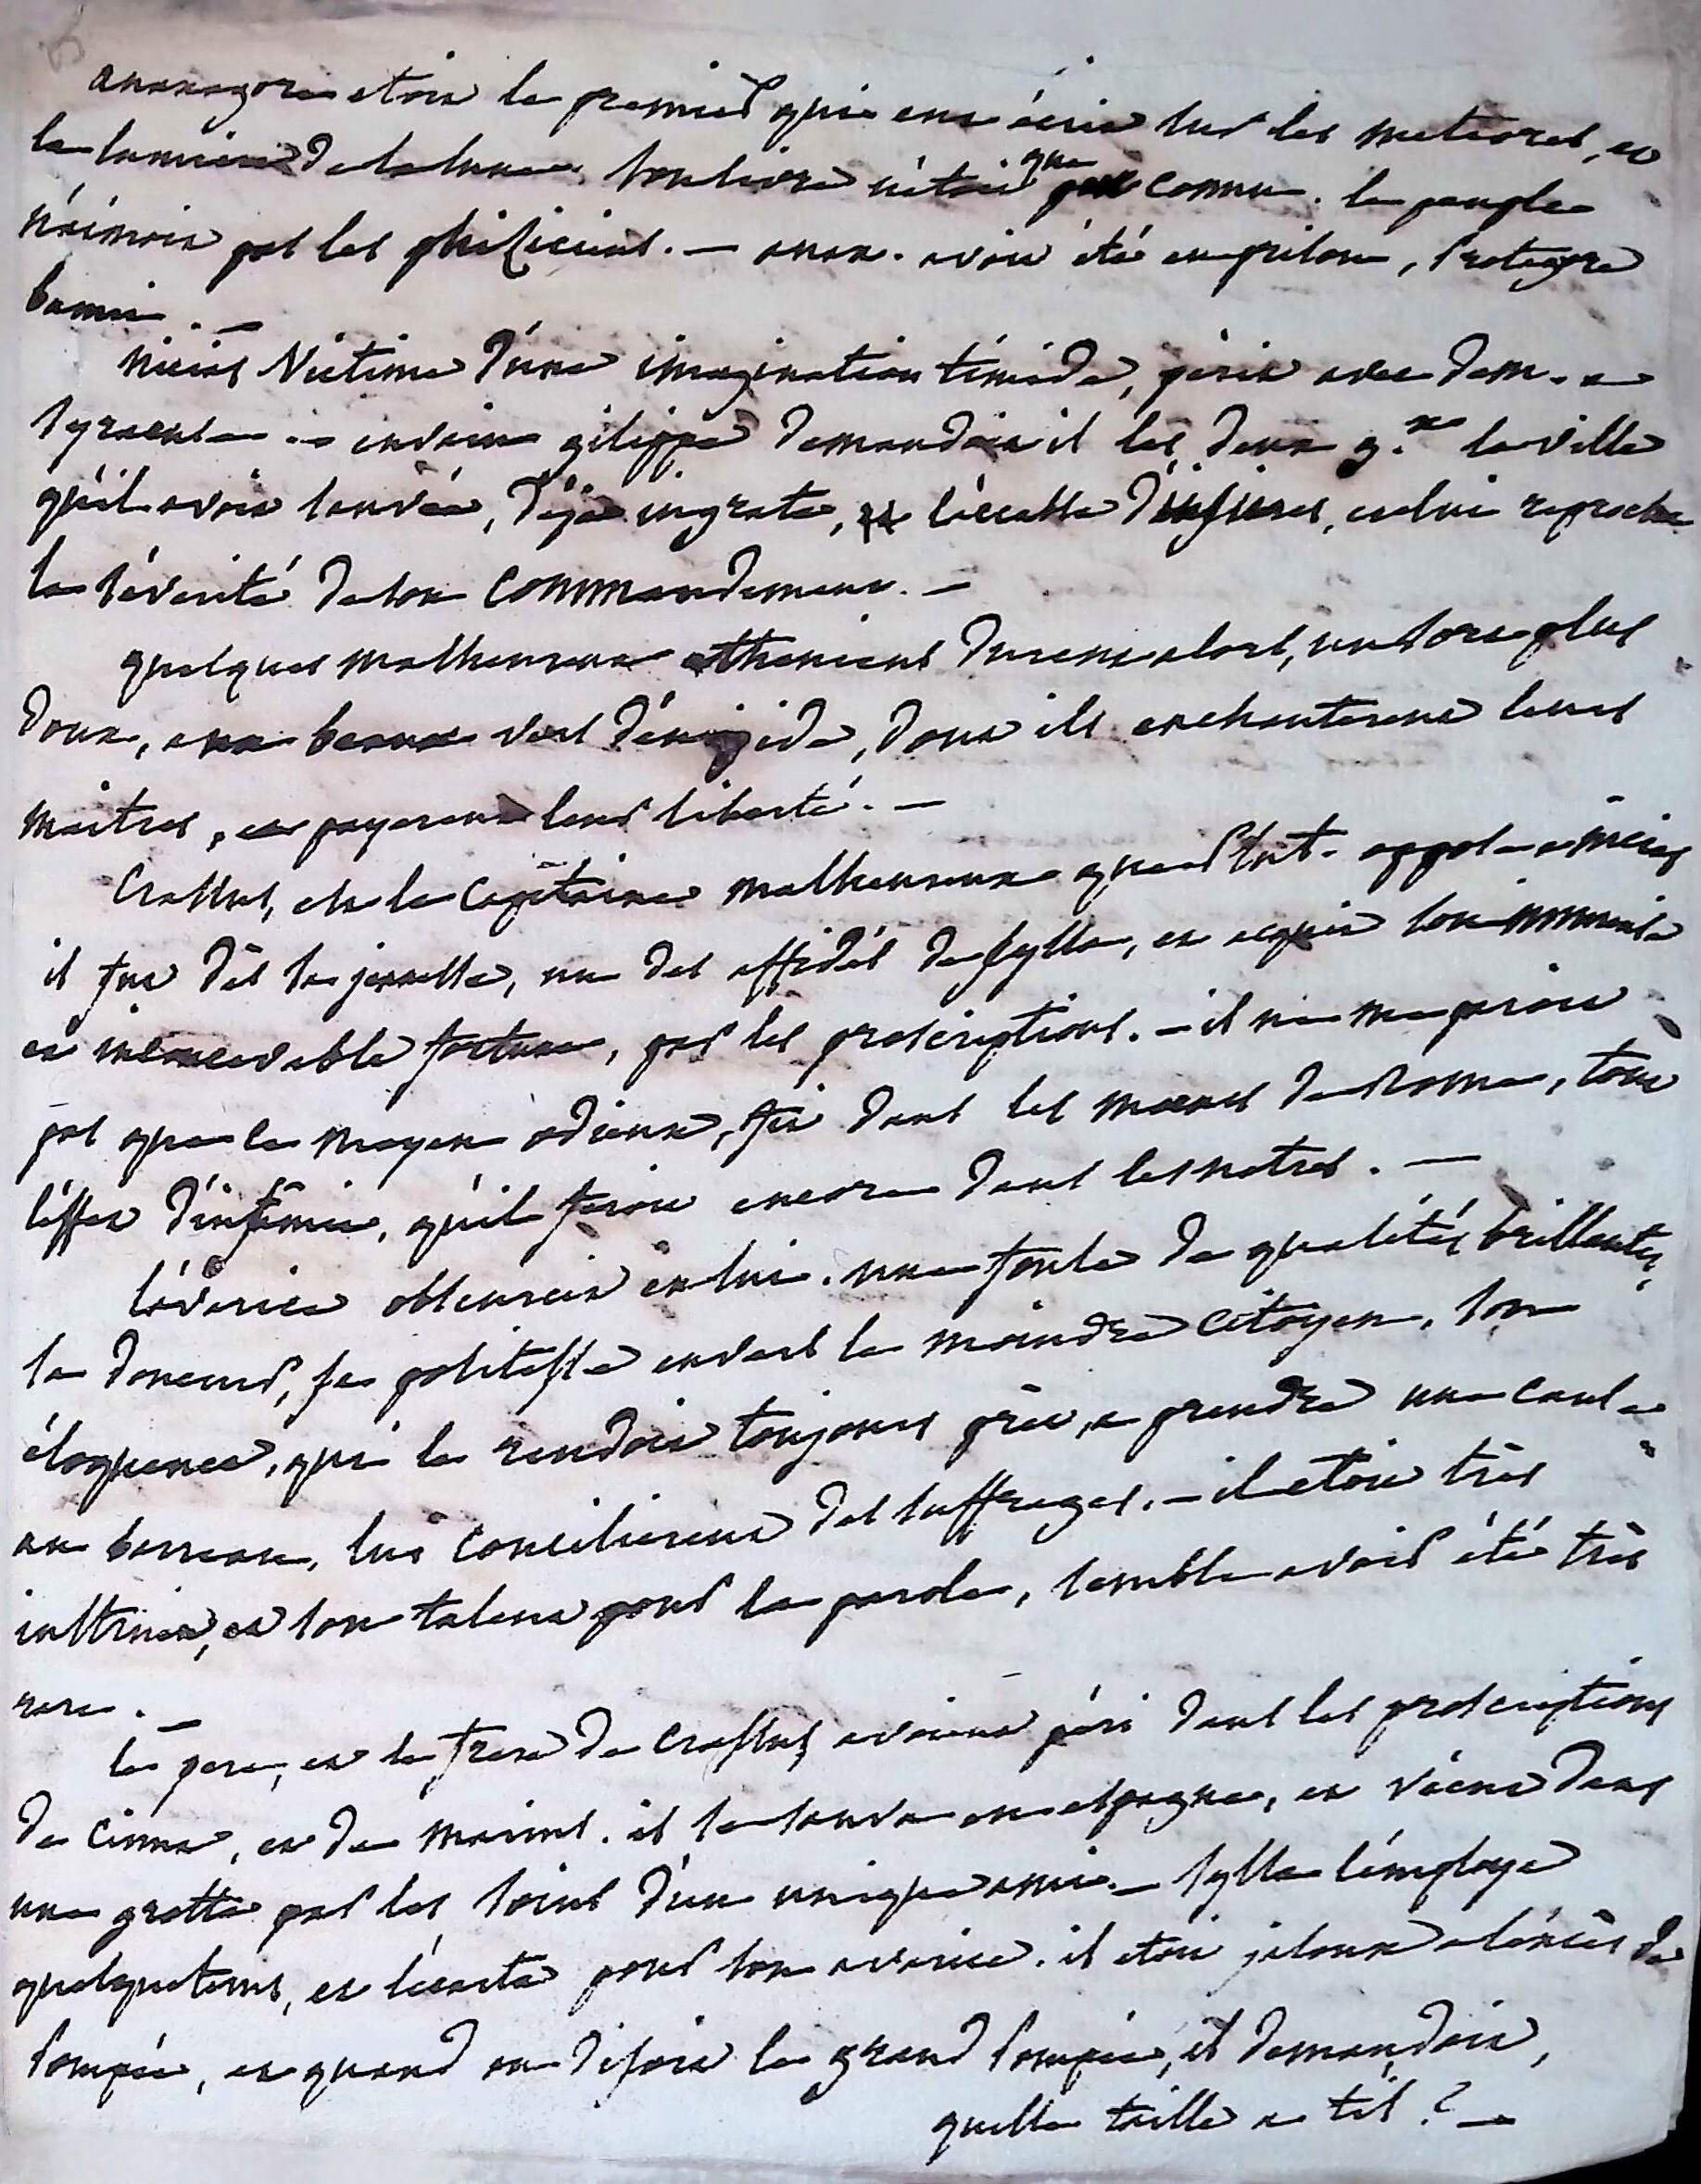 anaxagore etoit le premier qui eut écrit sur les meteores, et
la lumiere de la lune. son livre n'étoit que peu connu. le peuple
n'aimoit pas les phisiciens. — anax. avoit été en prison, protagore
banni. —
nicias victime d'une imagination timide, périt avec dem. a
syracuse. — envain gilippe demandoit il les deux g.aux la ville
qu'il avoit sauvée, déja ingrate, l'accabla d'injures, et lui reprocha
la sévérité de son commandement. —
quelques malheureux atheniens durent alors, un sort plus
doux, aux beaux vers d'euripide, dont ils enchanterent leurs
maitres, et payerent leur liberté. —
Crassus, est le capitaine malheureux que plut. oppose a nicias
il fut dès sa jeunesse, un des affidés de sylla, et acquit son immense
et inconcevable fortune, par les proscriptions. — il ne me paroit
pas que ce moyen odieux, fit dans les moeurs de Rome, tout
l'effet d'infamie, qu'il feroit encore dans les notres. —
l'avarice obscurcit en lui. une foule de qualités brillantes,
sa douceur, sa politesse envers le moindre citoyen, son
éloquence, qui le rendoit toujours prèt, a prendre une cause
au barreau, lui concilierent des suffrages. — il etoit très
instruit, et son talent pour la parole, semble avoir été très
rare. —
le pere, et le frere de crassus, avoient péri dans les proscriptions
de cinna, et de marius. il se sauva en espagne, et vécut dans
une grotte par les soins d'un unique ami. — sylla l'employa
quelquetems, et l'ecarta pour son avarice. il etoit jaloux a l'éxcès de
Pompée, et quand on disoit le grand Pompée, il demandoit,
quelle taille a til ? —